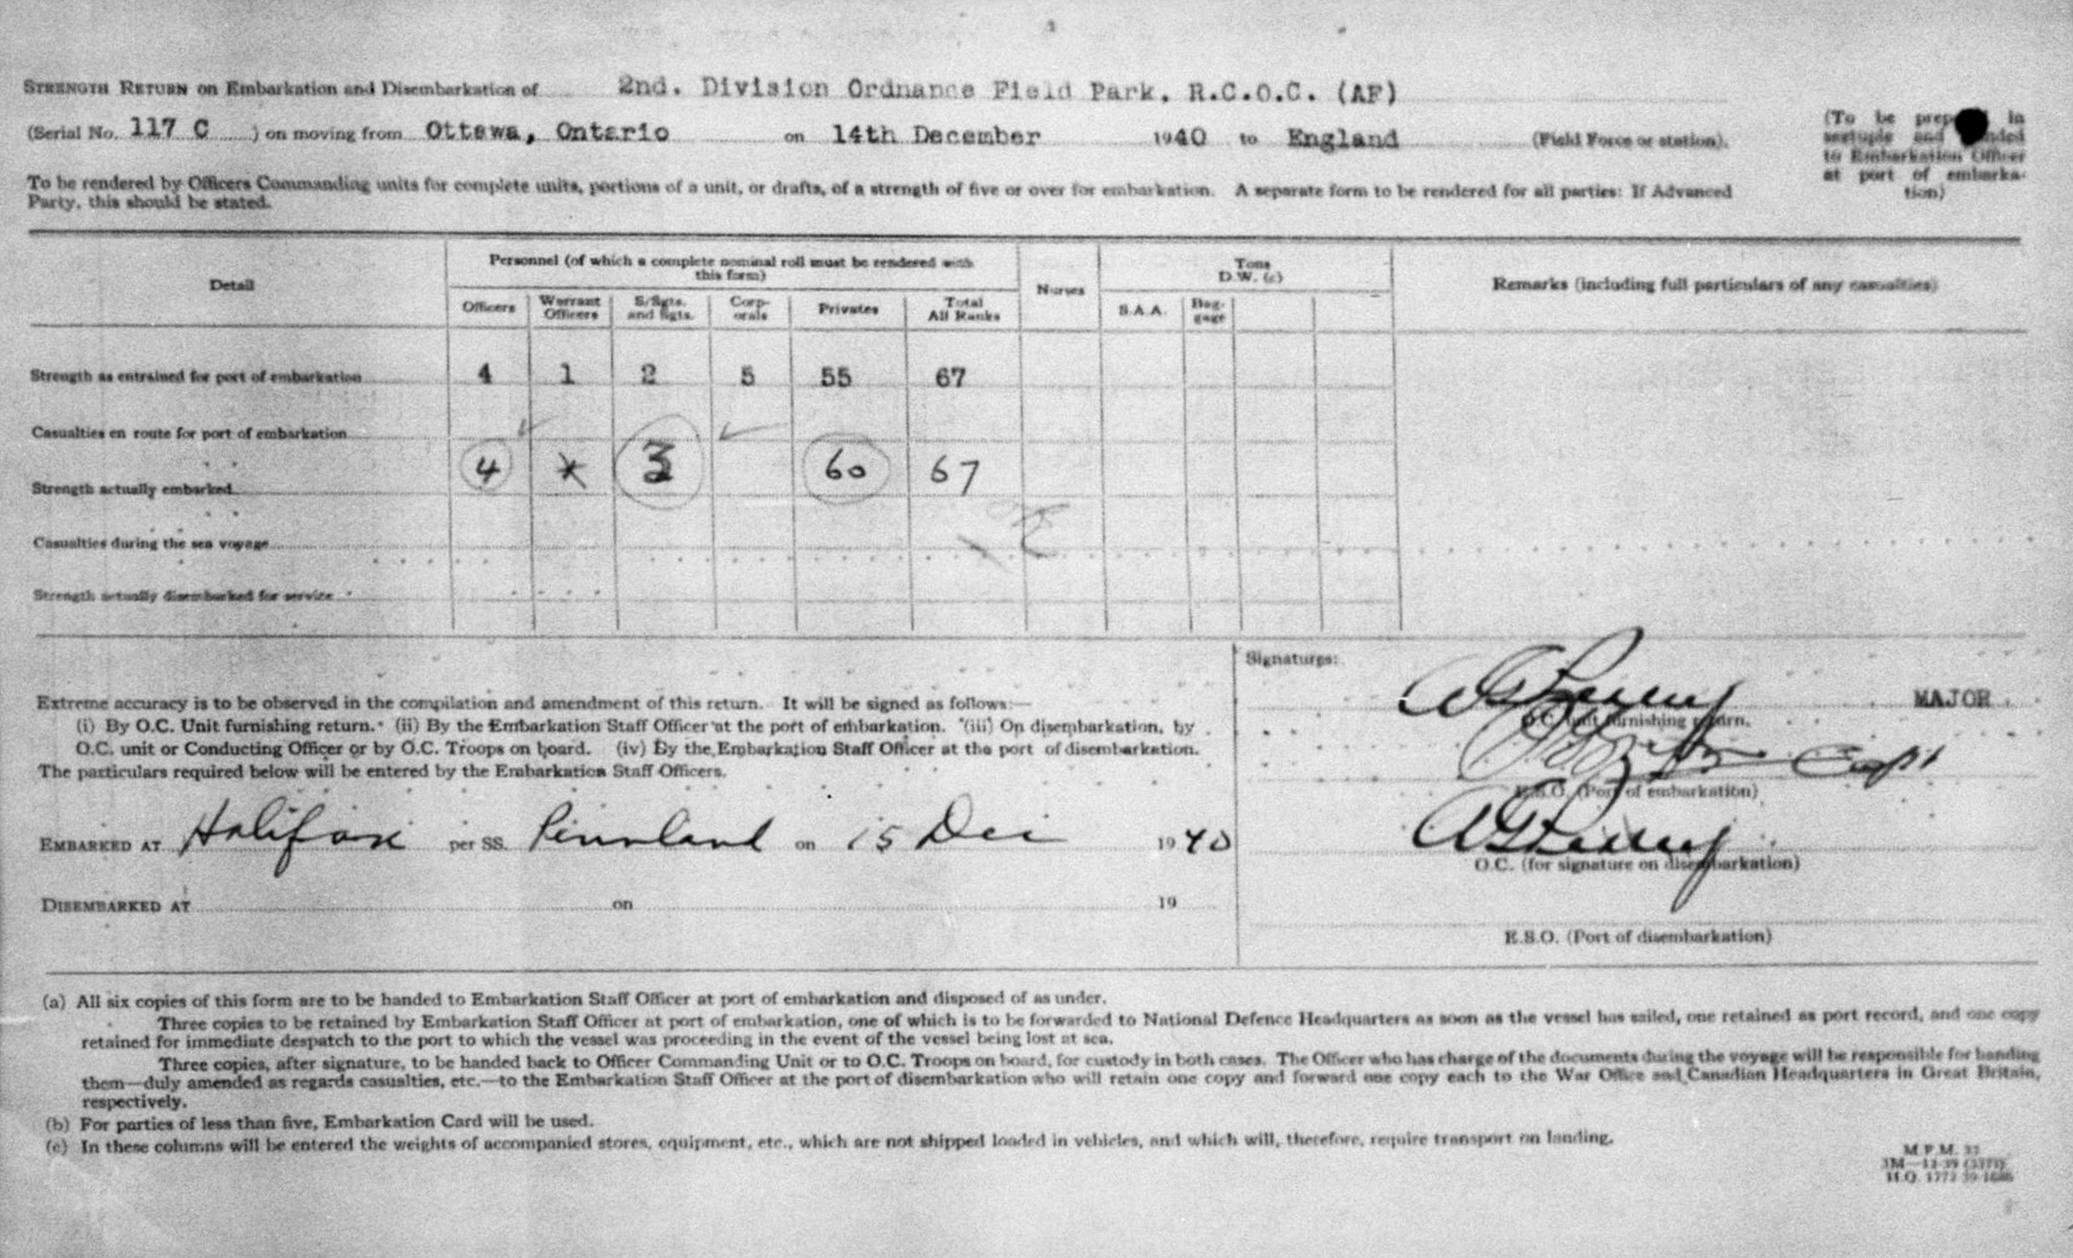 STRENGTH RETURN on Embarkation and Disembarkation of 2nd. Division Ordnance Field Park, R.C.O.C. (AF)
(Serial No. 117 C ) on moving from Ottawa, Ontario on 14th December 1940 to England (Field Force or station).
(To be in
sextuple and
to Embarkation Officer
at port of embarka-
tion)
To be rendered by Officers Commanding units for complete units, portions of a unit, or drafts, of a strength of five or over for embarkation. A separate form to be rendered for all parties: If Advanced
Party, this should be stated.
Detail
Personnel (of which a complete nominal roll must be rendered with
this form)
Officers
Warrant
Officers
S/Sgts.
and Sgts.
Corp-
orals
Privates
Total
All Ranks
Nurses
Tons
D.W. (c)
S.A.A.
Bag-
gage
Remarks (including full particulars of any casualties)
Strength as entrained for port of embarkation 4 1 2 5 55 67
Casualties en route for port of embarkation
Strength actually embarked 4 3 60 67
Casualties during the sea voyage
Strength actually disembarked for service
Extreme accuracy is to be observed in the compilation and amendment of this return. It will be signed as follows:—
(i) By O.C. Unit furnishing return. (ii) By the Embarkation Staff Officer at the port of embarkation. (iii) On disembarkation, by
O.C. unit or Conducting Officer or by O.C. Troops on board. (iv) By the Embarkation Staff Officer at the port of disembarkation.
The particulars required below will be entered by the Embarkation Staff Officers.
EMBARKED AT Halifax per SS. Pennland on 15 Dec 1940
DISEMBARKED AT on 19
Signatures:
MAJOR
O.C. unit furnishing return.
Capt
E.S.O. (Port of embarkation)
O.C. (for signature on disembarkation)
E.S.O. (Port of disembarkation)
(a) All six copies of this form are to be handed to Embarkation Staff Officer at port of embarkation and disposed of as under.
Three copies to be retained by Embarkation Staff Officer at port of embarkation, one of which is to be forwarded to National Defence Headquarters as soon as the vessel has sailed, one retained as port record, and one copy
retained for immediate despatch to the port to which the vessel was proceeding in the event of the vessel being lost at sea.
Three copies, after signature, to be handed back to Officer Commanding Unit or to O.C. Troops on board, for custody in both cases. The Officer who has charge of the documents during the voyage will be responsible for handing
them—duly amended as regards casualties, etc.—to the Embarkation Staff Officer at the port of disembarkation who will retain one copy and forward one copy each to the War Office and Canadian Headquarters in Great Britain,
respectively.
(b) For parties of less than five, Embarkation Card will be used.
(c) In these columns will be entered the weights of accompanied stores, equipment, etc., which are not shipped loaded in vehicles, and which will, therefore, require transport on landing.
M.F.M. 37
H.Q. 1772